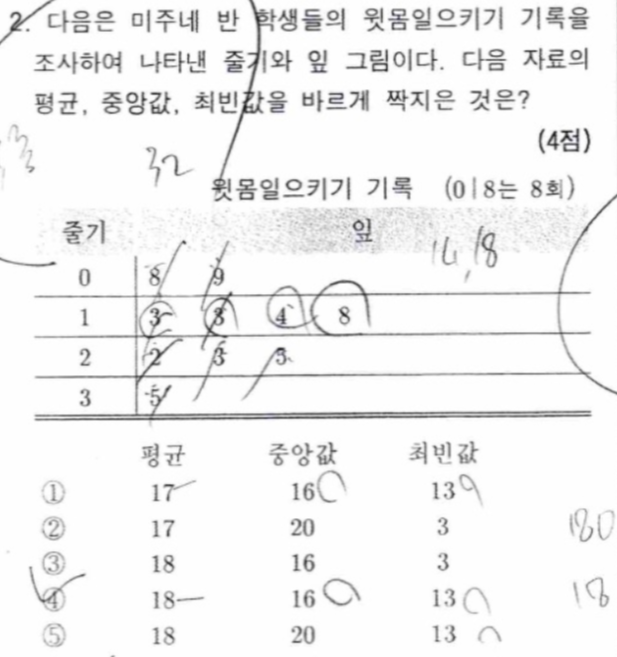 2. 다음은 미주네 반 학생들의 윗몸일으키기 기록을
조사하여 나타낸 줄기와 잎 그림이다. 다음 자료의
평균, 중앙값, 최빈값을 바르게 짝지은 것은?
(4점)
32
윗몸일으키기 기록 (0|8는 8회)
줄기 잎
14, 18
0 8 9
1 3 3 4 8
2 2 3
3 5
평균 중앙값 최빈값
① 17 16 13
② 17 20 3
180
③ 18 16 3
④ 18 16 13
18
⑤ 18 20 13